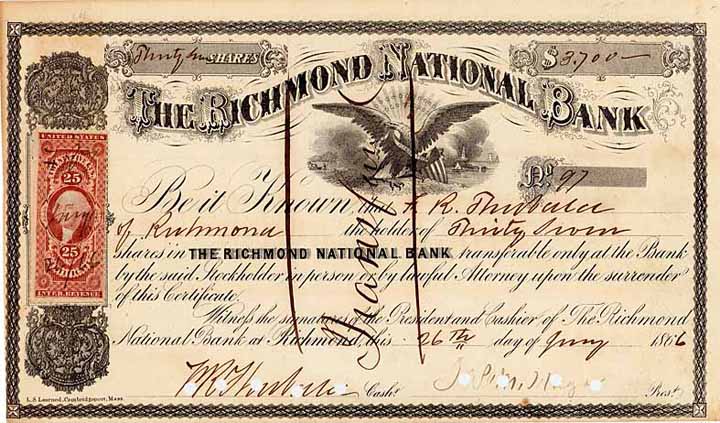 Thirty Seven SHARES
$ 3,700 —
THE RICHMOND NATIONAL BANK
No 97
UNITED STATES
25
25
INTER. REVENUE
Be it Known, that R.
of Richmond the holder of Thirty Seven
shares in THE RICHMOND NATIONAL BANK transferable only at the Bank
by the said Stockholder in person or by lawful Attorney upon the surrender
of this Certificate.
Witness the signatures of the President and Cashier of The Richmond
National Bank at Richmond, this 26th day of 1866
Cashr.
Prest.
L. S. Learned, Cambridgeport, Mass.